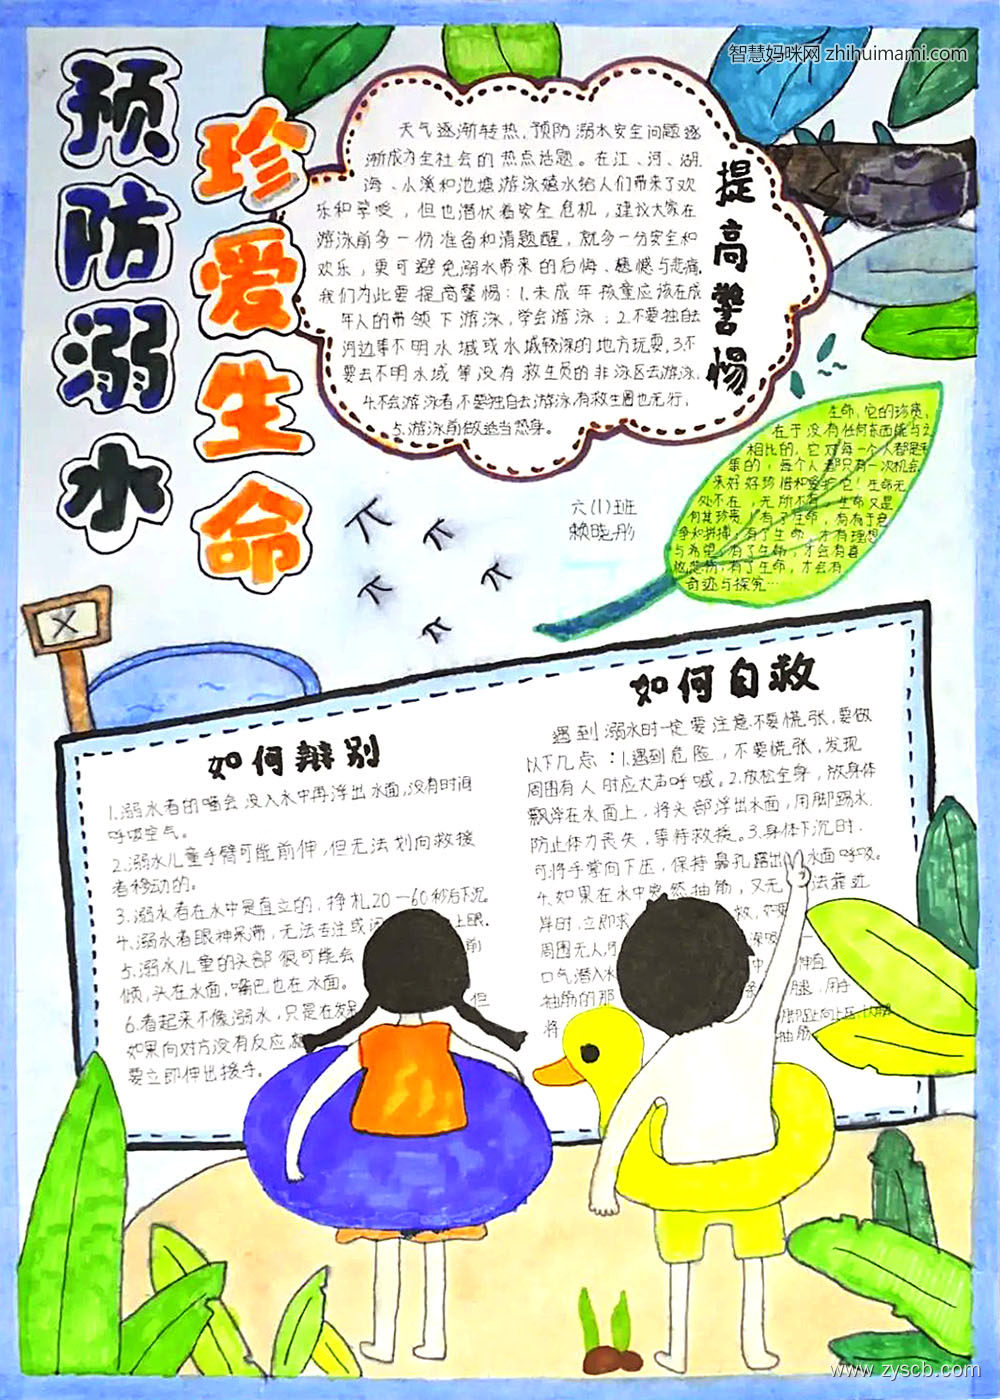 智慧妈咪网 zhihuimami.com
预防溺水
珍爱生命
提高警惕
天气逐渐转热,预防溺水安全问题逐
渐成为全社会的热点话题。在江、河、湖、
海、小溪和池塘游泳嬉水给人们带来了欢
乐和享受,但也潜伏着安全危机,建议大家在
游泳前多一份准备和清题醒,就多一分安全和
欢乐,更可避免溺水带来的后悔、遗憾与悲痛,
我们为此要提高警惕:1.未成年孩童应该在成
年人的带领下游泳,学会游泳;2.不要独自去
河边等不明水域或水域较深的地方玩耍,3.不
要去不明水域等没有救生员的非泳区去游泳,
4.不会游泳者,不要独自去游泳,有救生圈也无行;
5.游泳前做适当热身。
六(1)班
赖晓彤
生命,它的珍贵,
在于没有任何东西能与之
相比的,它对每一个人都是平
康的,每个人都只有一次机会,
来好好珍惜和爱护它!生命无
处不在,无所不有,生命又是
何其珍贵,有了生命,有有了竞
争和拼搏;有了生命,才有理想
与希望;有了生命,才会有喜
怒悲伤;有了生命,才会有
奇迹与探究……
X
如何辩别
1.溺水者的嘴会没入水中再浮出水面,没有时间
呼吸空气。
2.溺水儿童手臂可能前伸,但无法划向救援
者移动的。
3.溺水者在水中是直立的,挣扎20一60秒后下沉。
4.溺水者眼神呆滞,无法专注或闭上眼.
5.溺水儿童的头部很可能会前
倾,头在水面,嘴巴也在水面。
6.看起来不像溺水,只是在发 但
如果向对方没有反应
要立即伸出援手。
如何自救
遇到溺水时一定要注意不要慌张,要做
以下几点:1.遇到危险,不要慌张,发现
周围有人时应大声呼喊。2.放松全身,放身体
飘浮在水面上,将头部浮出水面,用脚踢水,
防止体力丧失,等待救援。3.身体下沉时,
可将手掌向下压,保持鼻孔露出水面呼吸。
4.如果在水中突然抽筋,又无法靠近
岸时,立即求救,
周围无人 深吸一
口气潜入水中 伸直
抽筋的那 腿,用手
将 脚趾向上
抽筋
www.zyscb.com